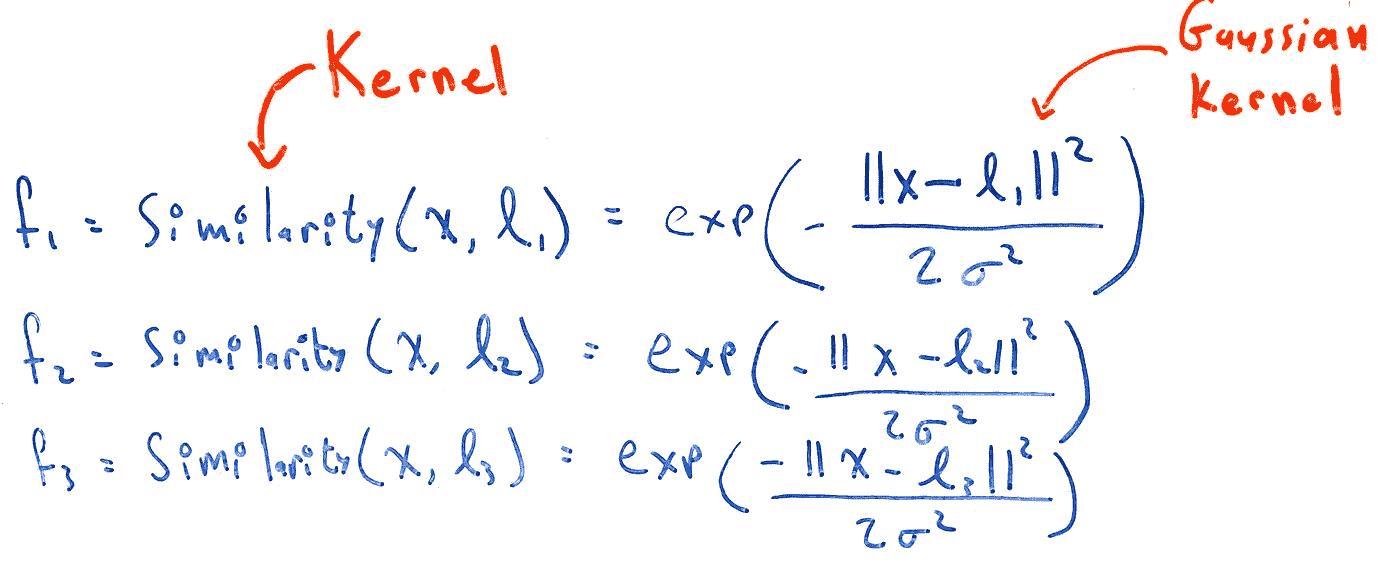 Kernel
Gaussian
Kernel
f₁ = Similarity(x, l₁) = exp(- ||x - l₁||² / 2σ²)
f₂ = Similarity(x, l₂) = exp(- ||x - l₂||² / 2σ²)
f₃ = Similarity(x, l₃) = exp(- ||x - l₃||² / 2σ²)